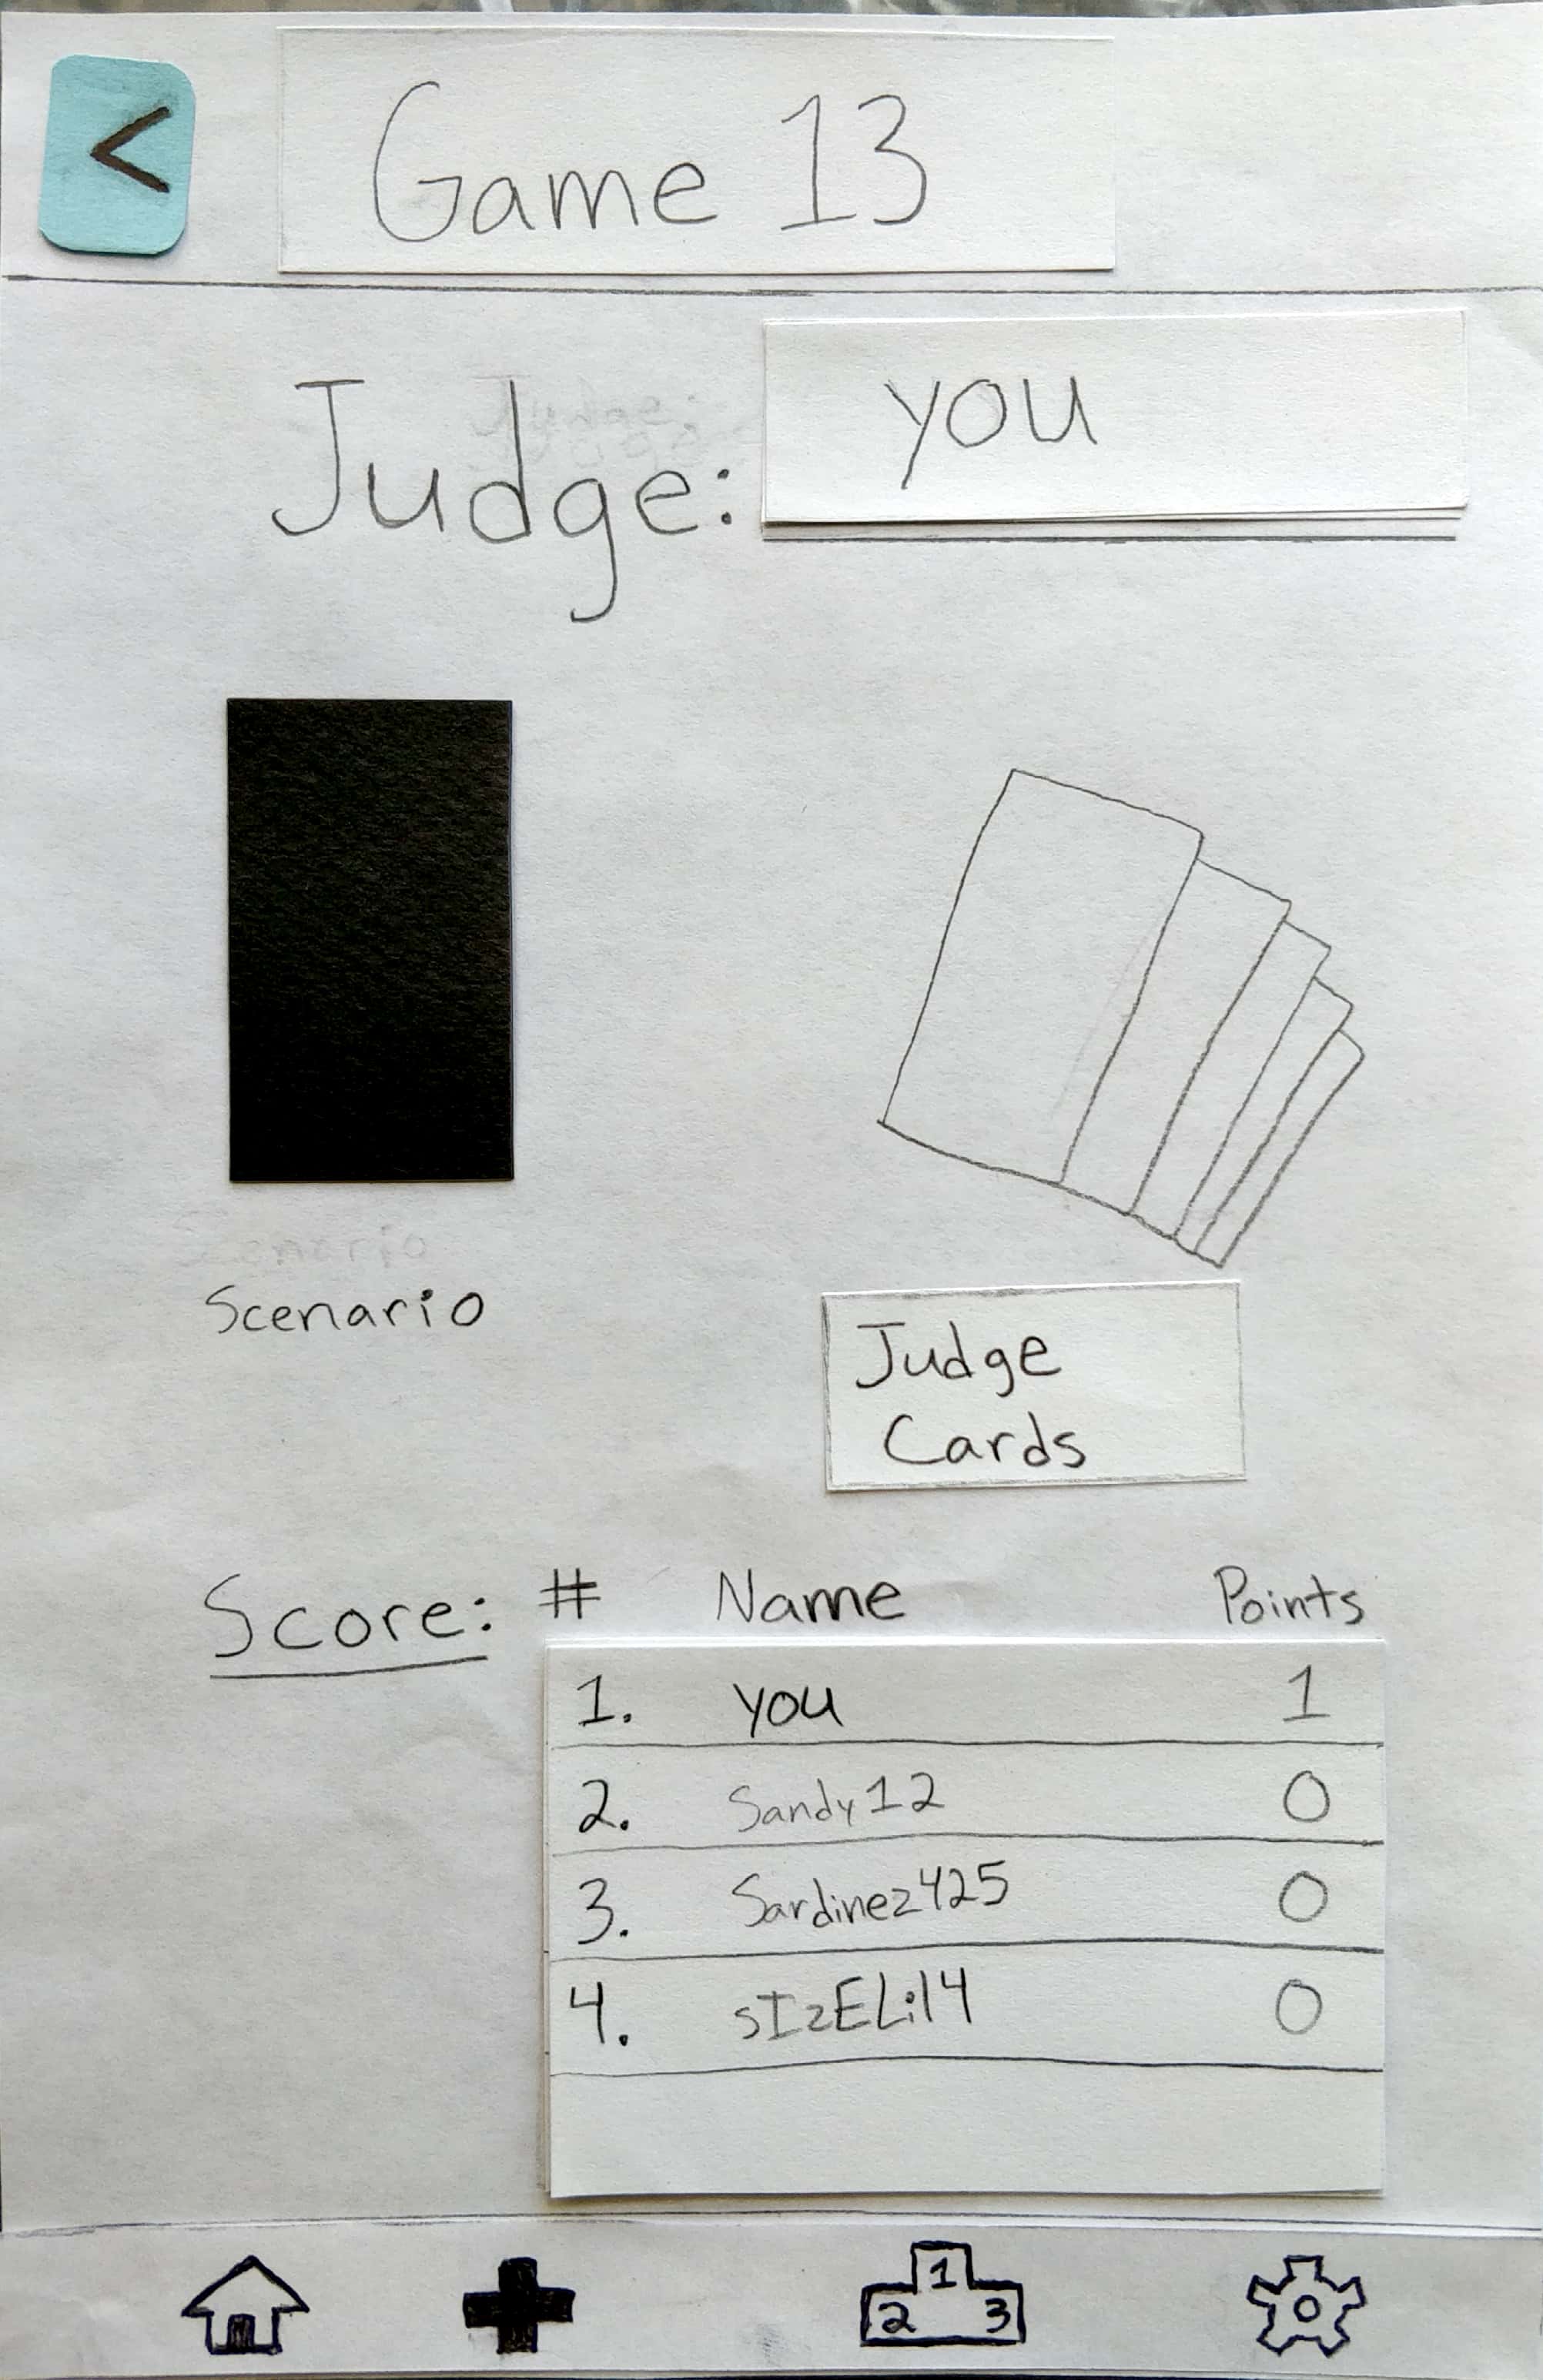 <
Game 13
Judge: you
Scenario
Judge
Cards
Score: # Name Points
1. you 1
2. Sandy12 0
3. Sardinez425 0
4. sIzELil4 0
1
2 3